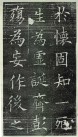 於懷固知一
生為虛誕齊彭
殤為妄作後之